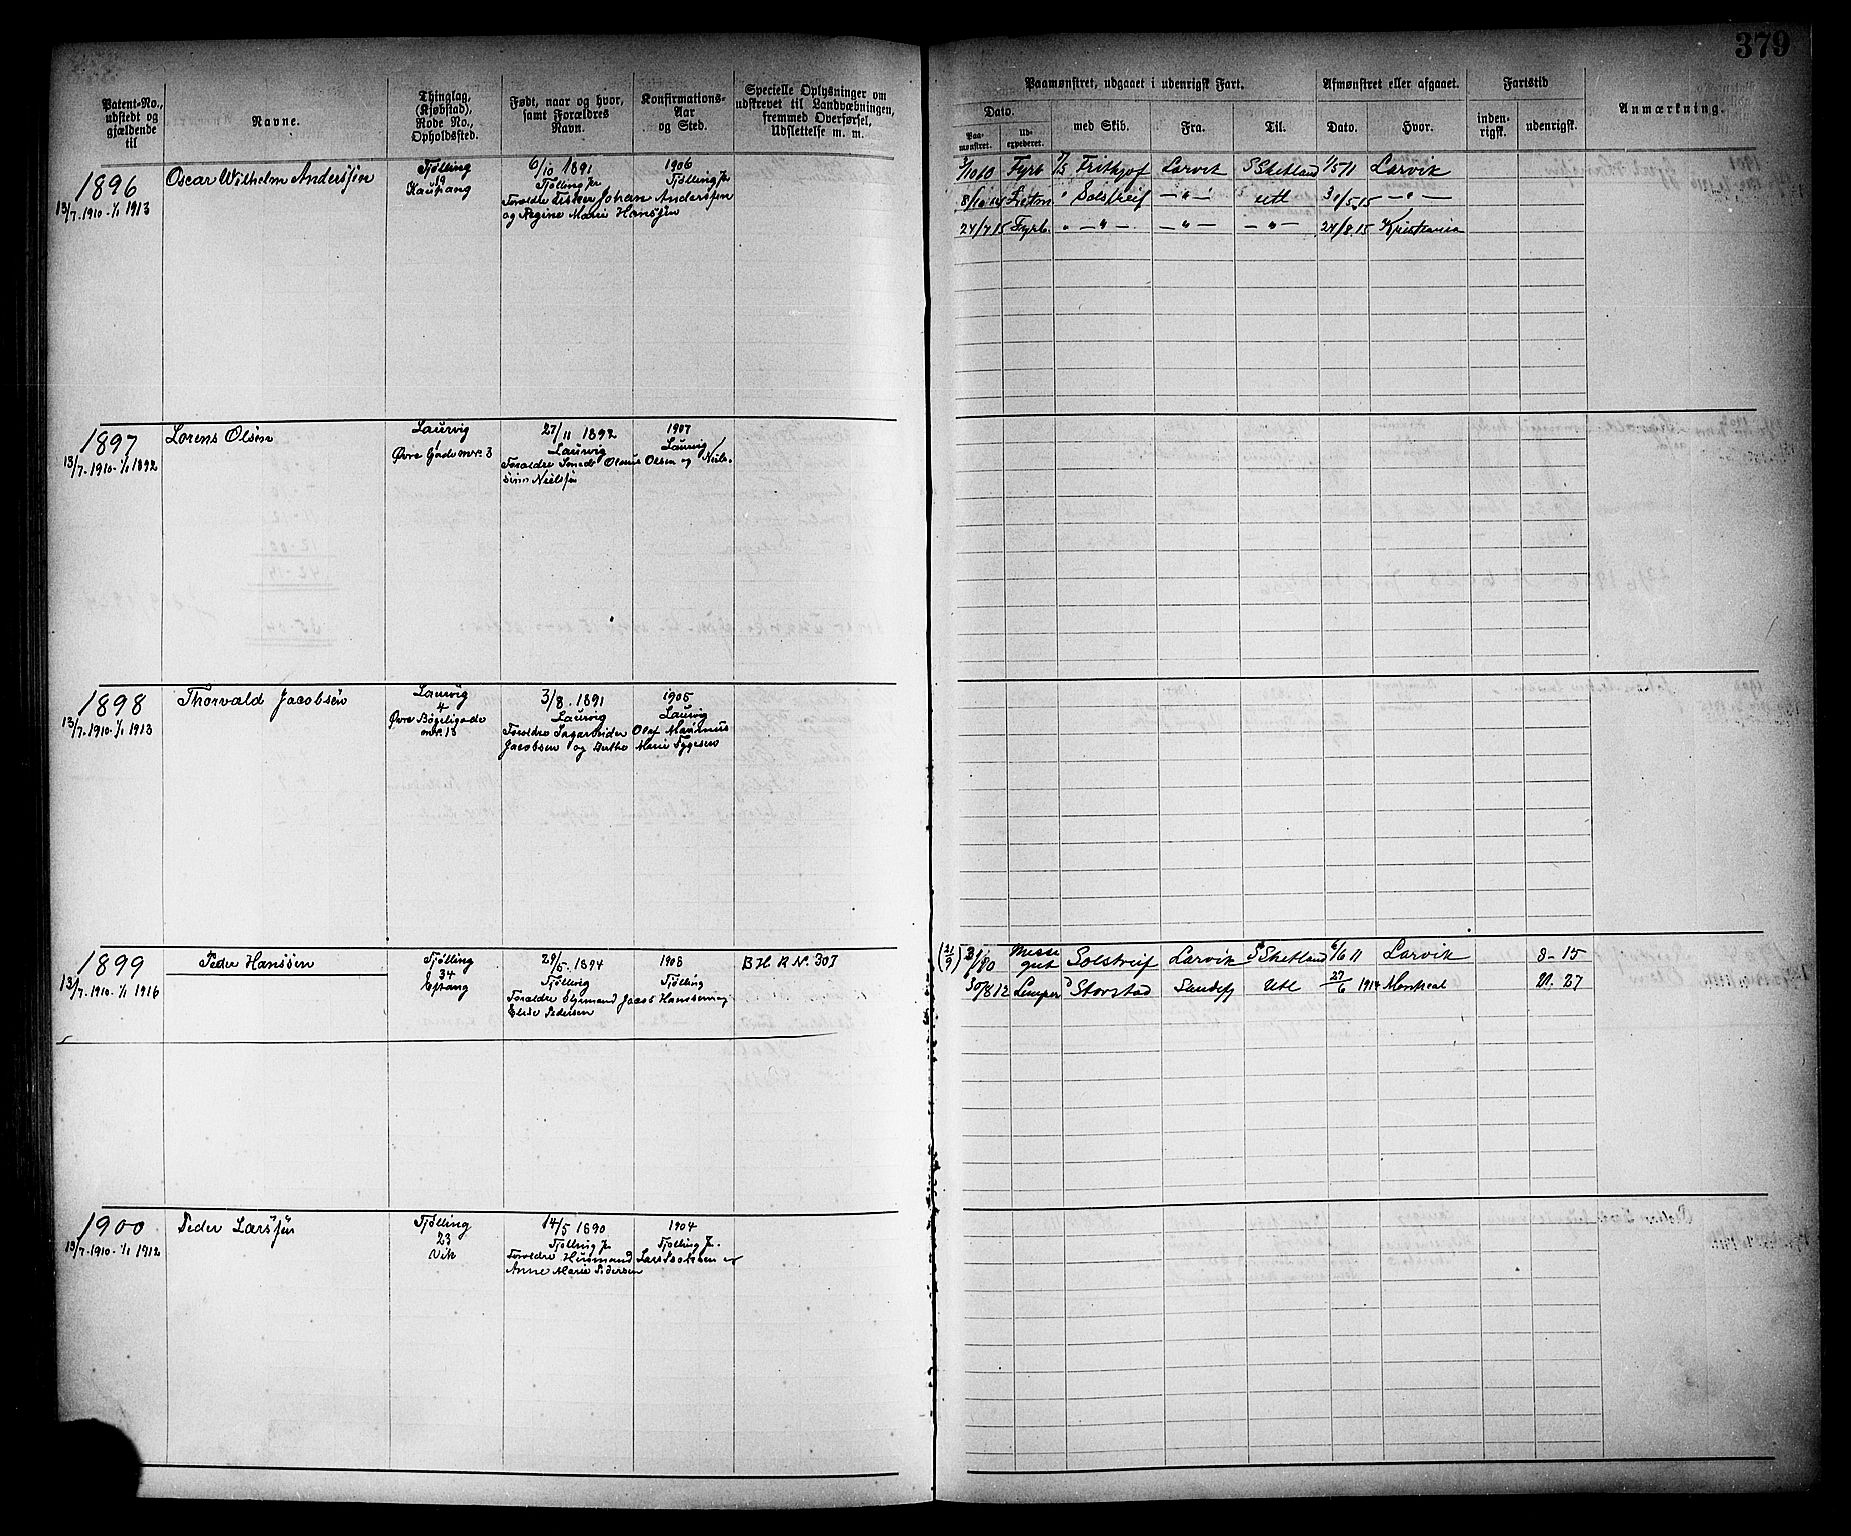 379
Patent-No., udstedt og gjældende til
Navne.
Thinglag, (Kjøbstad), Rode No., Opholdssted.
Født, naar og hvor, samt Forældres Navn.
Konfirmations-Aar og Sted.
Specielle Oplysninger om udskrevet til Landvæbningen, fremmed Overførsel, Udslettelse m. m.
Paamønstret, udgaaet i udenrigsk Fart.
Dato.
Paa-mønstret.
Ud-expederet.
med Skib.
Fra.
Til.
Afmønstret eller afgaaet.
Dato.
Hvor.
Fartstid
inden-rigsk.
udenrigsk.
Anmærkning.
1896
13/7.1910-1/1 1913
Oscar Wilhelm Anderssen
Tjølling
19
Kaupang
6/10 1891
Tjølling pr
Forældre Fisker Johan Anderssen
og Regine Marie Hanssen
1906
Tjølling pr
3/10 10 Fyrb Frithjof Larvik S Shetland 1/5 11 Larvik
8/10 14 Solstreif — " — utl 30/5.15 — " —
24/7 15 Fyrb. — " — — " — — " — 24/8.15 Kristiania
1897
13/7.1910-1/1 1892
Lorens Olsen
Laurvig
Øvre Gade nr. 3
27/11 1892
Laurvig
Forældre Smed Olaus Olsen og Niel-
sine Nielsen
1907
Laurvig
1898
13/7.1910-1/1 1913
Thorvald Jacobsen
Laurvig
4
Øvre Bøgeligade
nr. 13
3/8. 1891
Laurvig
Forældre Sagarbeider Olaf Marinius
Jacobsen og Berthe Marie Tygesen
1905
Laurvig
1899
13/7.1910-1/1 1916
Peder Hanssen
Tjølling
34
Eftang
29/5. 1894
Tjølling
Forældre Styrmand Jacob Hanssen og
Elise Pedersen
1908
Tjølling
B H R N. 307
Messe
gut Solstreif Larvik S Shetland 6/6 11 Larvik 8-15
30/8 12 Lemper Storstad Sandefj Utl 27/6 1914 Montreal 21. 27
1900
13/7.1910-1/1 1912
Peder Larssen
Tjølling
23
Vik
14/5 1890
Tjølling pr
Forældre Husmand Lars Isaksen og
Anne Marie Pedersen
1904
Tjølling pr.